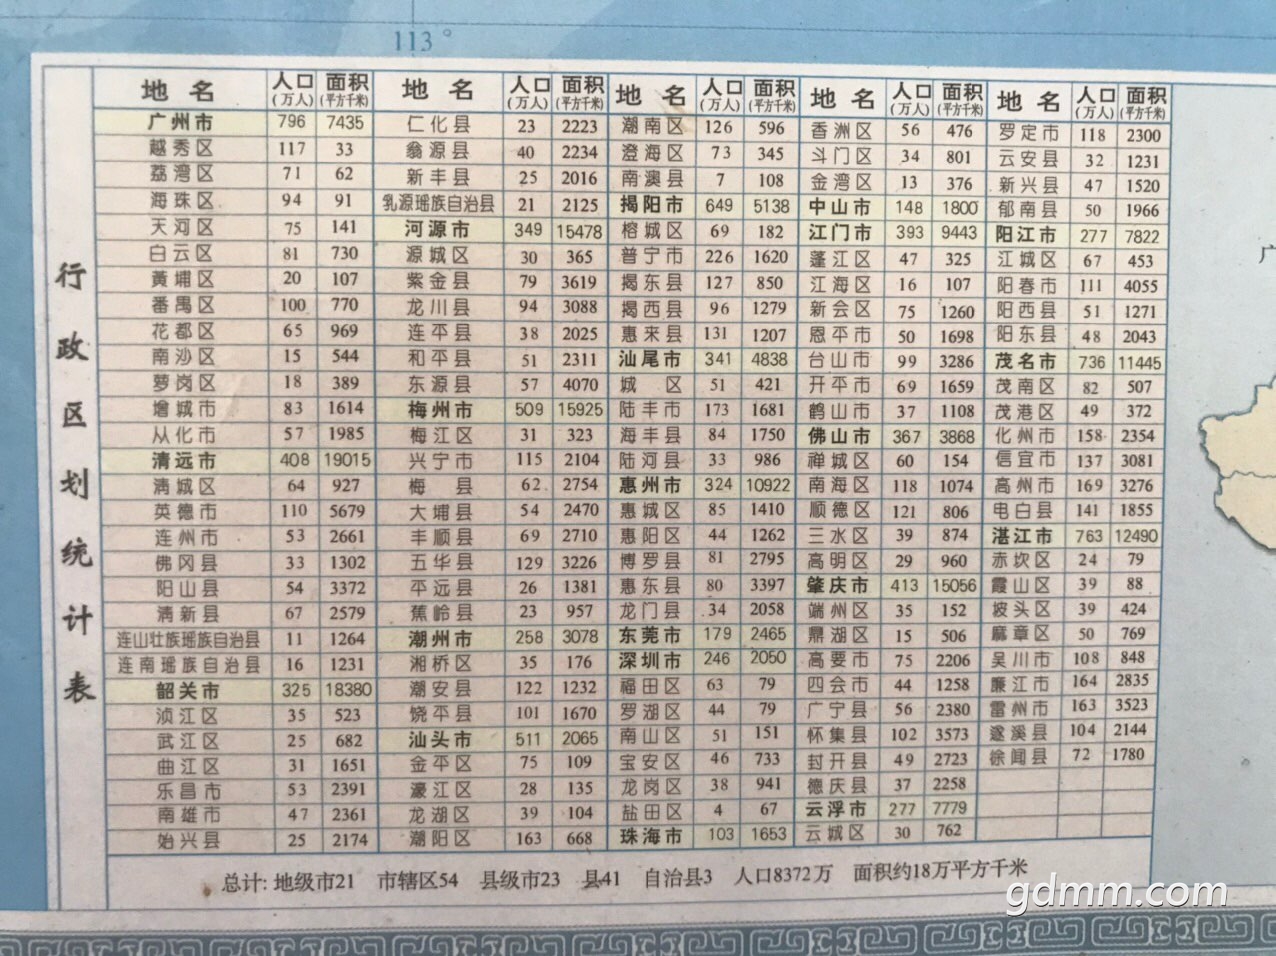 113°
行政区划统计表
地名 人口(万人) 面积(平方千米) 地名 人口(万人) 面积(平方千米) 地名 人口(万人) 面积(平方千米) 地名 人口(万人) 面积(平方千米) 地名 人口(万人) 面积(平方千米)
广州市 796 7435 仁化县 23 2223 潮南区 126 596 香洲区 56 476 罗定市 118 2300
越秀区 117 33 翁源县 40 2234 澄海区 73 345 斗门区 34 801 云安县 32 1231
荔湾区 71 62 新丰县 25 2016 南澳县 7 108 金湾区 13 376 新兴县 47 1520
海珠区 94 91 乳源瑶族自治县 21 2125 揭阳市 649 5138 中山市 148 1800 郁南县 50 1966
天河区 75 141 河源市 349 15478 榕城区 69 182 江门市 393 9443 阳江市 277 7822
白云区 81 730 源城区 30 365 普宁市 226 1620 蓬江区 47 325 江城区 67 453
黄埔区 20 107 紫金县 79 3619 揭东县 127 850 江海区 16 107 阳春市 111 4055
番禺区 100 770 龙川县 94 3088 揭西县 96 1279 新会区 75 1260 阳西县 51 1271
花都区 65 969 连平县 38 2025 惠来县 131 1207 恩平市 50 1698 阳东县 48 2043
南沙区 15 544 和平县 51 2311 汕尾市 341 4838 台山市 99 3286 茂名市 736 11445
萝岗区 18 389 东源县 57 4070 城区 51 421 开平市 69 1659 茂南区 82 507
增城市 83 1614 梅州市 509 15925 陆丰市 173 1681 鹤山市 37 1108 茂港区 49 372
从化市 57 1985 梅江区 31 323 海丰县 84 1750 佛山市 367 3868 化州市 158 2354
清远市 408 19015 兴宁市 115 2104 陆河县 33 986 禅城区 60 154 信宜市 137 3081
清城区 64 927 梅县 62 2754 惠州市 324 10922 南海区 118 1074 高州市 169 3276
英德市 110 5679 大埔县 54 2470 惠城区 85 1410 顺德区 121 806 电白县 141 1855
连州市 53 2661 丰顺县 69 2710 惠阳区 44 1262 三水区 39 874 湛江市 763 12490
佛冈县 33 1302 五华县 129 3226 博罗县 81 2795 高明区 29 960 赤坎区 24 79
阳山县 54 3372 平远县 26 1381 惠东县 80 3397 肇庆市 413 15056 霞山区 39 88
清新县 67 2579 蕉岭县 23 957 龙门县 34 2058 端州区 35 152 坡头区 39 424
连山壮族瑶族自治县 11 1264 潮州市 258 3078 东莞市 179 2465 鼎湖区 15 506 麻章区 50 769
连南瑶族自治县 16 1231 湘桥区 35 176 深圳市 246 2050 高要市 75 2206 吴川市 108 848
韶关市 325 18380 潮安县 122 1232 福田区 63 79 四会市 44 1258 廉江市 164 2835
浈江区 35 523 饶平县 101 1670 罗湖区 44 79 广宁县 56 2380 雷州市 163 3523
武江区 25 682 汕头市 511 2065 南山区 51 151 怀集县 102 3573 遂溪县 104 2144
曲江区 31 1651 金平区 75 109 宝安区 46 733 封开县 49 2723 徐闻县 72 1780
乐昌市 53 2391 濠江区 28 135 龙岗区 38 941 德庆县 37 2258
南雄市 47 2361 龙湖区 39 104 盐田区 4 67 云浮市 277 7779
始兴县 25 2174 潮阳区 163 668 珠海市 103 1653 云城区 30 762
总计: 地级市21 市辖区54 县级市23 县41 自治县3 人口8372万 面积约18万平方千米
gdmm.com